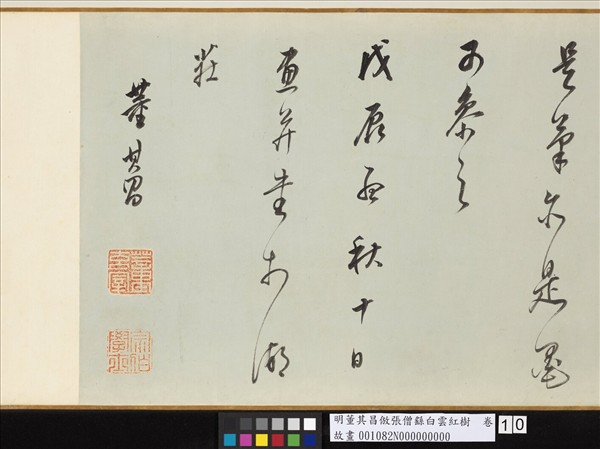 是筆亦是墨
可參之
戊辰孟秋十日
畫并書於湖
莊
董其昌
宗伯學士
明董其昌倣張僧繇白雲紅樹 卷
故畫 001082N000000000
10